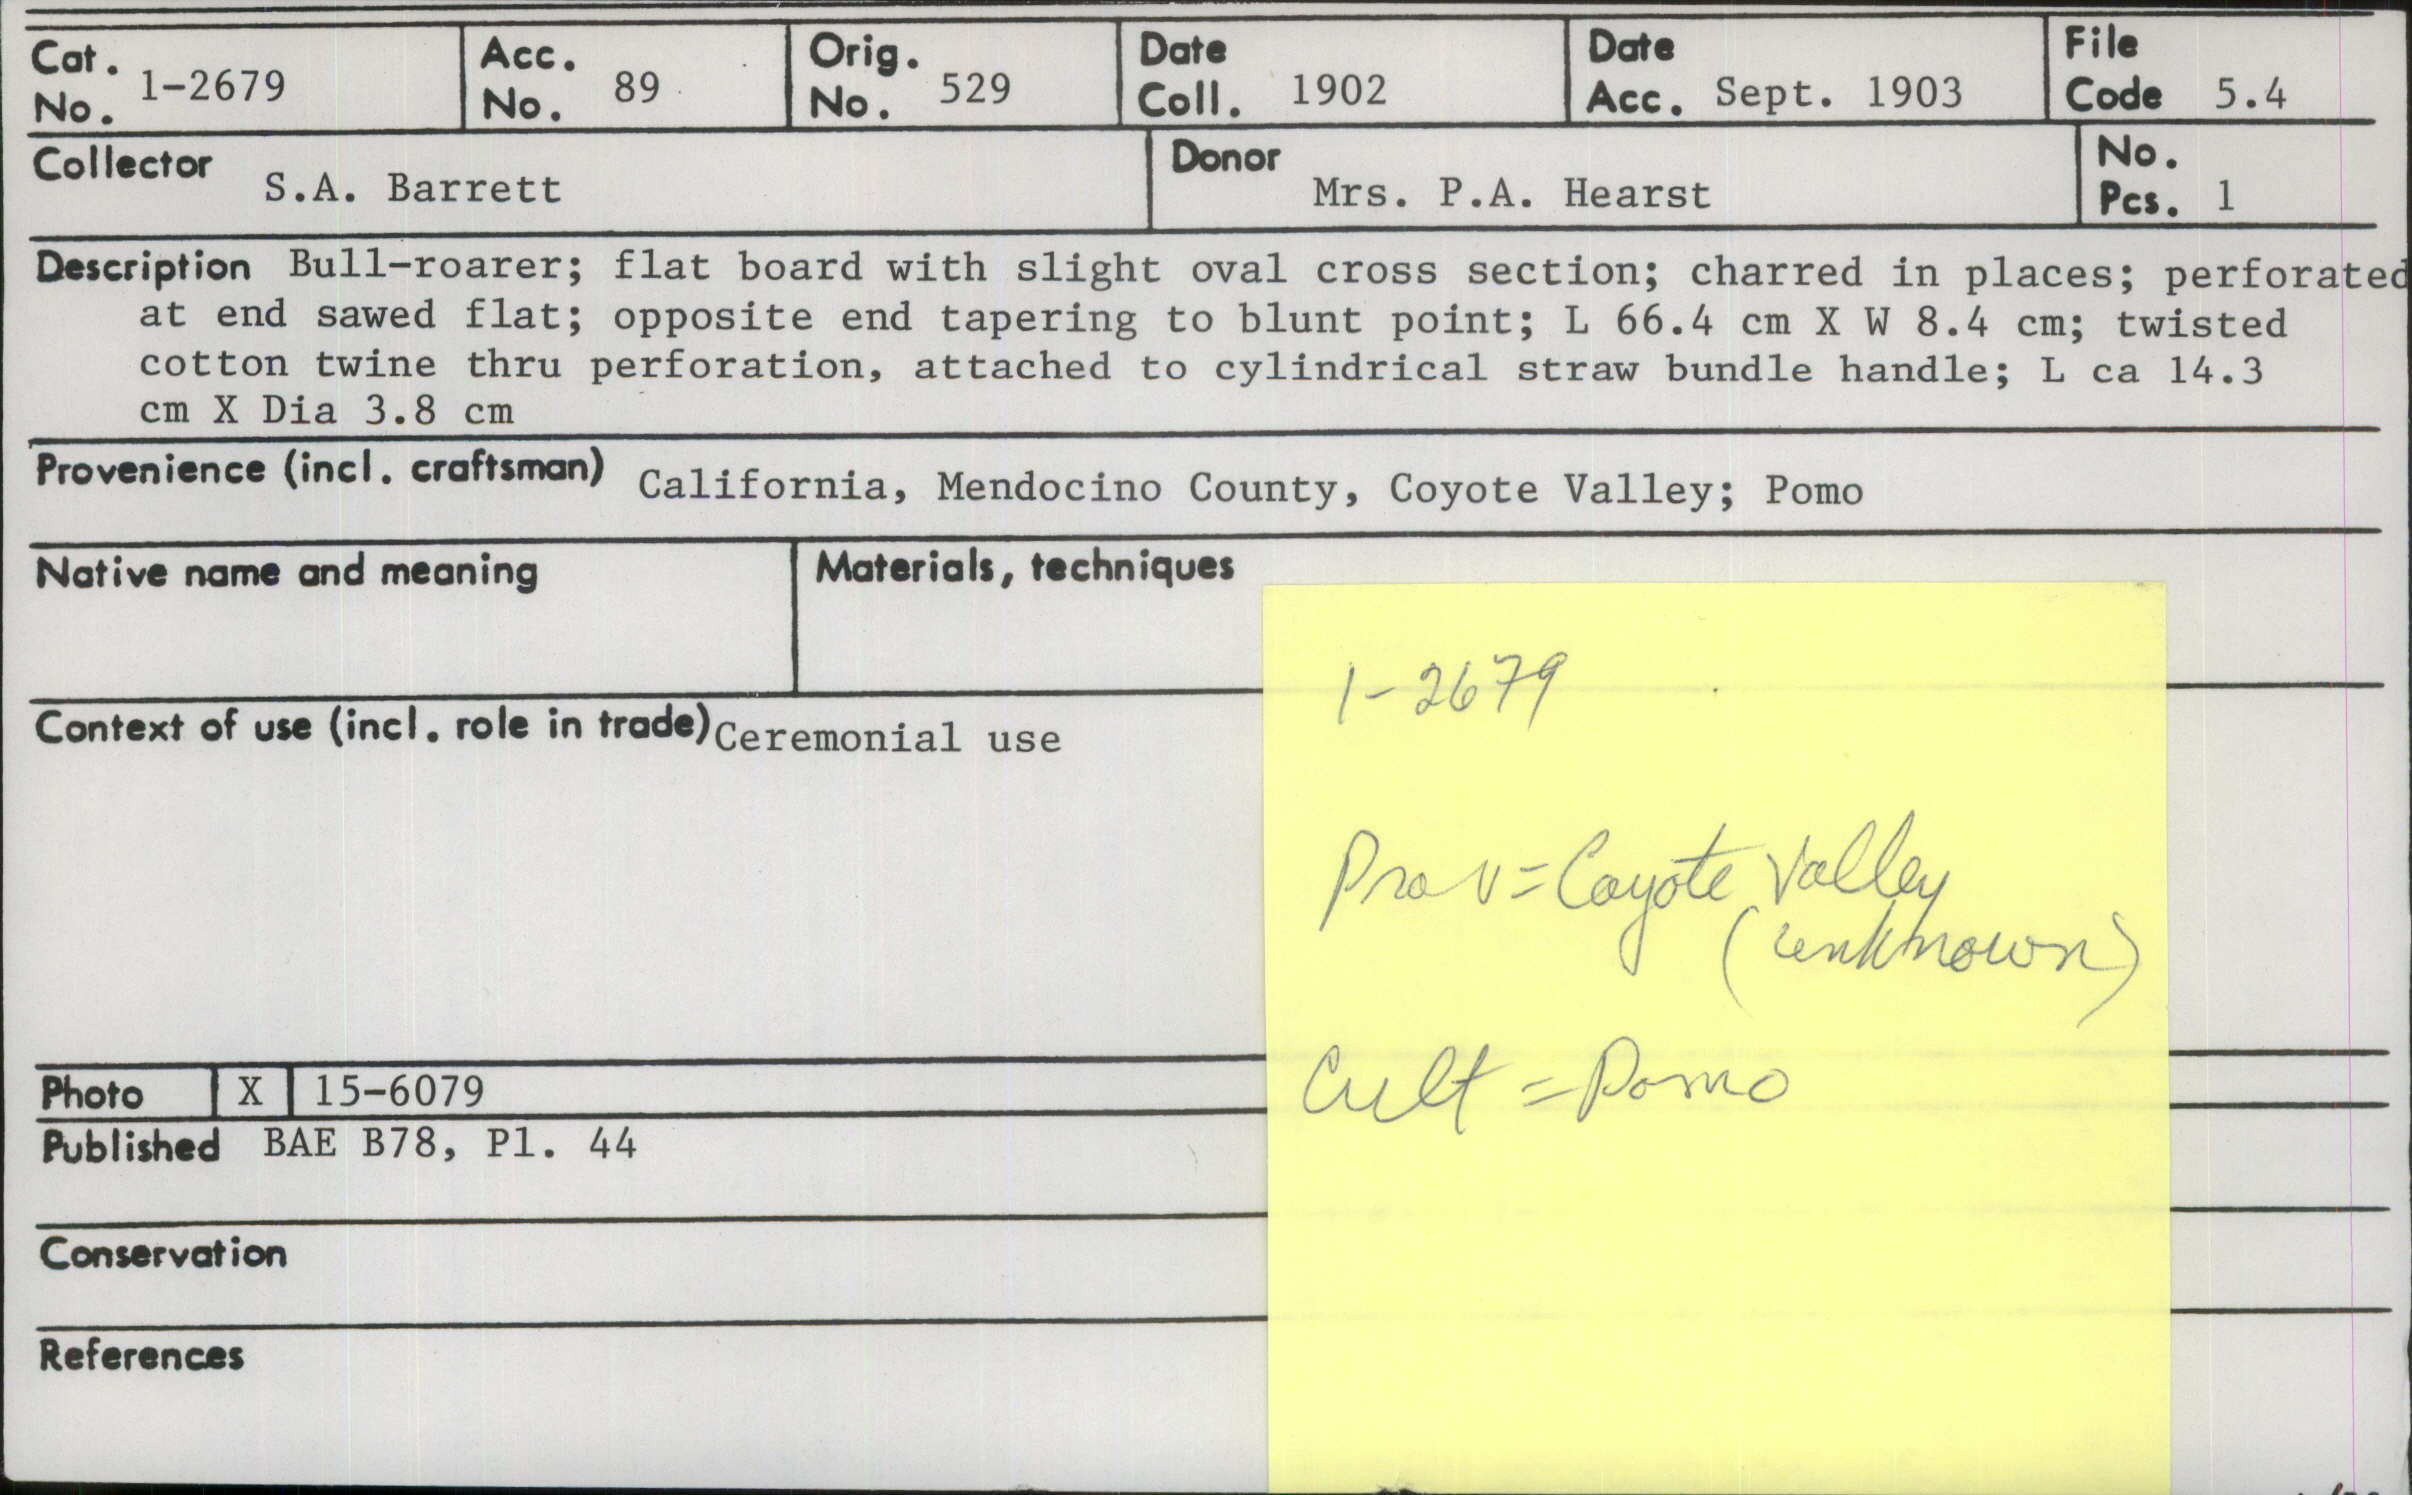 Cat. No. 1-2679 Acc. No. 89 Orig. No. 529 Date Coll. 1902 Date Acc. Sept. 1903 File Code 5.4
Collector S.A. Barrett Donor Mrs. P.A. Hearst No. Pcs. 1
Description Bull-roarer; flat board with slight oval cross section; charred in places; perforated
at end sawed flat; opposite end tapering to blunt point; L 66.4 cm X W 8.4 cm; twisted
cotton twine thru perforation, attached to cylindrical straw bundle handle; L ca 14.3
cm X Dia 3.8 cm
Provenience (incl. craftsman) California, Mendocino County, Coyote Valley; Pomo
Native name and meaning Materials, techniques
Context of use (incl. role in trade) Ceremonial use
Photo X 15-6079
Published BAE B78, Pl. 44
Conservation
References
1-2679
Prov=Coyote Valley
(unknown)
Cult=Pomo